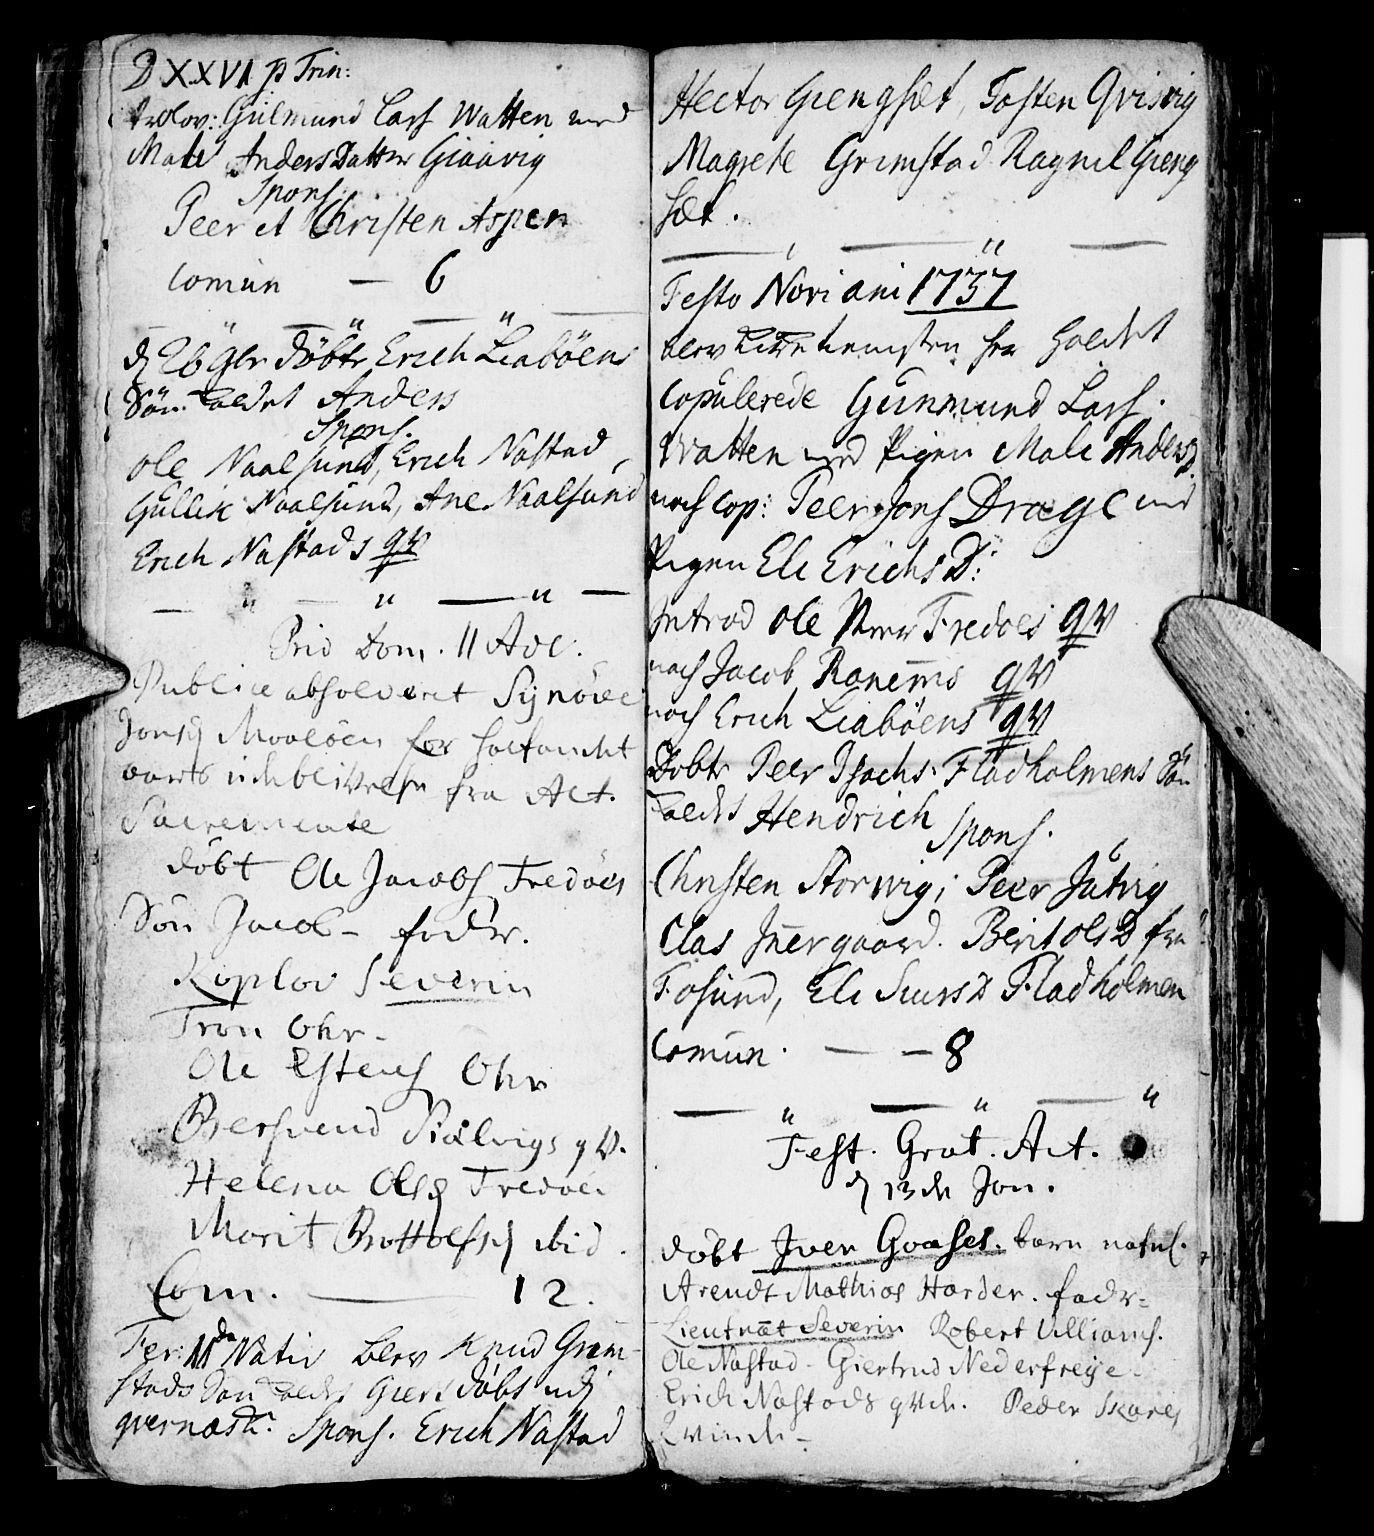 D XXVI p Trin:
trolov: Gulmund Lars Watten med
Mali Anders Datter Giaavig
Spons.
Peer et Christen Aspen
Comun — 6
d 26 9br döbt Erich Liaböens
Sön kaldet Anders
Spons.
Ole Naalsund, Erich Nastad,
Gullik Naalsund, Ane Naalsund
Erich Nastads qv
Prid Dom. II Adv.
Publice absolveret Synöve
Jonsd Moolöen for
fra Act.
Sacramente
döbt Ole Jacobs Fredöes
Sön Jacob - fadr.
Koplov Severin
Tron Ohr -
Ole Estens Ohr
Bersvend Siølvigs qv.
Helena Olsd Fredöe
Marit Brottolfsd ibid.
Com. — 12.
Fer: II da Nativ blev Knud Grim-
stads Sön kaldet Giert döbt udj
qvernæsk: Spons. Erich Nastad
Hector Giengsæt, Tosten Qvisvig
Magrete Grimstad Ragnil Gieng
sæt.
Festo Novi ani 1737
blev her holdet
Copulerede Gunmund Lars.
Watten med Pigen Mali Andersd.
noch cop: Peer Jons Drage med
Pigen Eli Erichs D:
Introd Ole Fredöes qv
noch Jacob Ranems qv
noch Erich Liaböens qv
Döbt Peer Isachs. Fladholmens Sön
kaldet Hendrich
Spons.
Christen Storwig; Peer Jutvig
Clas Inergaard. Berit Ols D fra
Fosund, Eli Siurs D Fladholmen
Comun. — — 8
Fest. Grat. Act.
d 13de Jan.
döbt Iver Goases. barn nafnl.
Arendt Mathias Harder. fadr=
Lieutnæt Severin Robert Villiams.
Ole Nastad - Giertrud Nederfreye -
Erich Nastads qvde. Peder Skares
Kvinde -